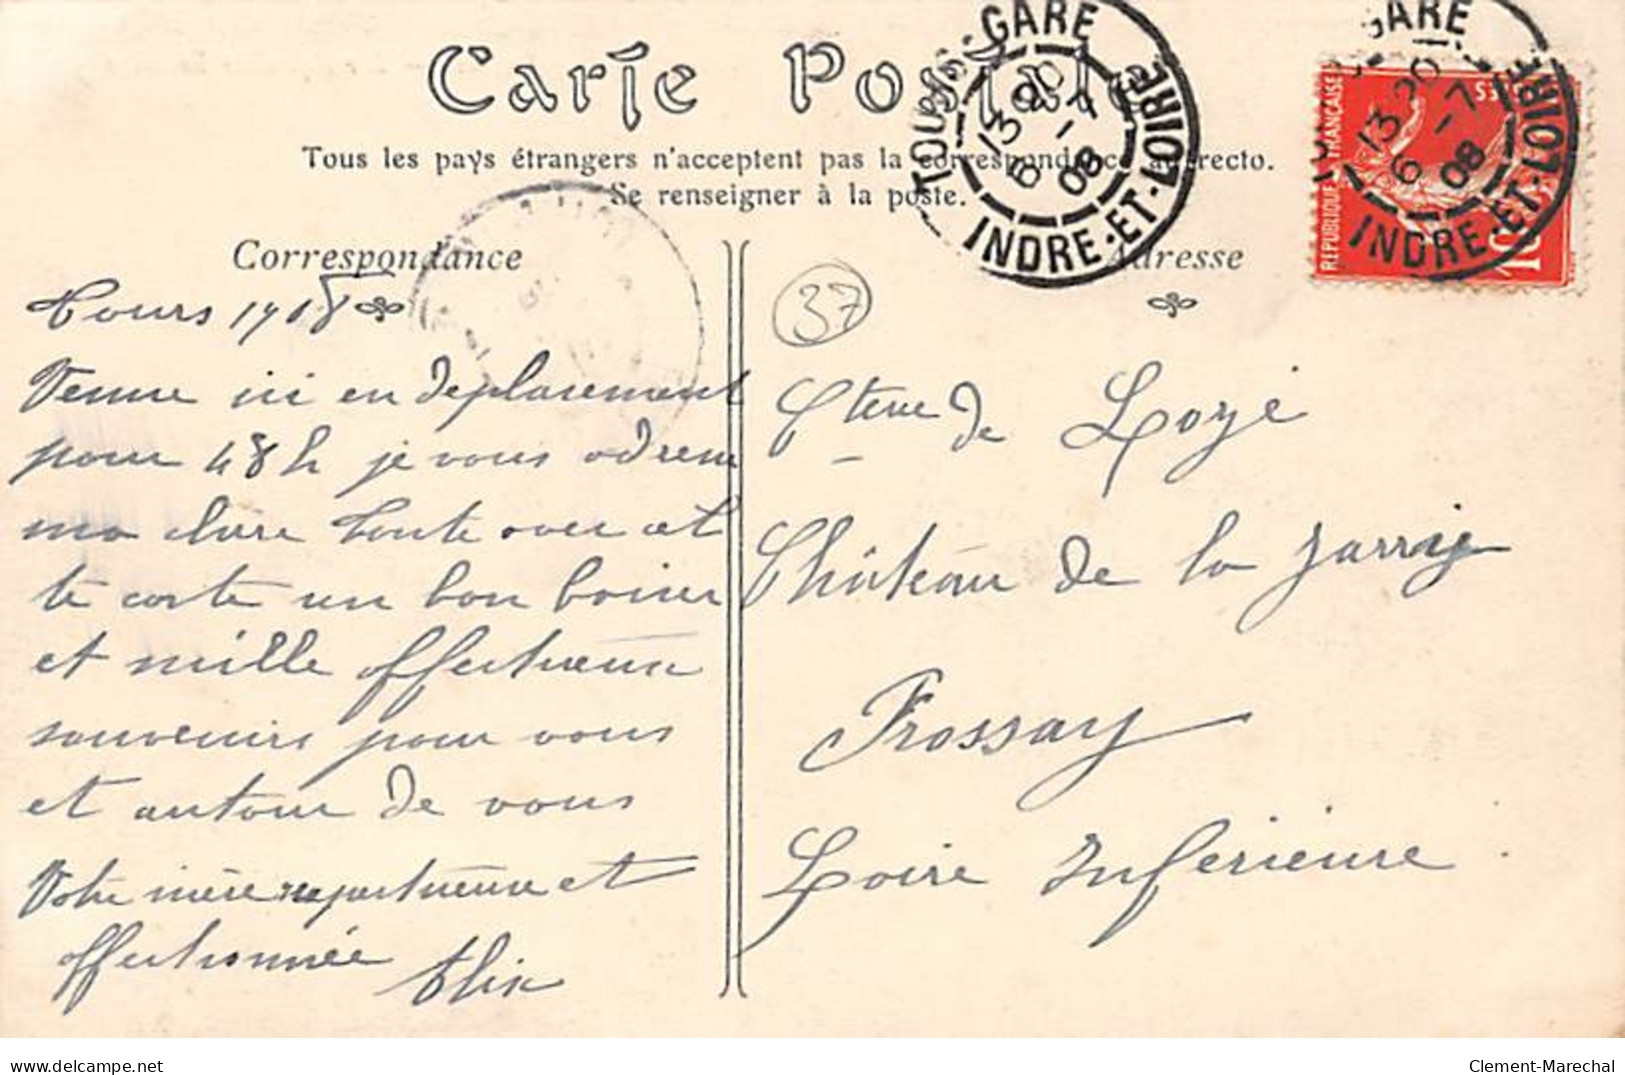 Carte Postale
Tous les pays étrangers n'acceptent pas la correspondance au recto.
Se renseigner à la poste.
Correspondance
Tours 1908
Venue ici en deplacement
pour 48 h je vous adresse
ma chère tante avec cet
te carte un bon baiser
et mille affectueux
souvenirs pour vous
et autour de vous
Votre nièce respectueuse et
affectionnée Alix
37
Adresse
Ctesse de Loyé
Château de la Jarrie
Frossay
Loire Inférieure
TOURS-GARE
13 20
6 -7
08
INDRE-ET-LOIRE
GARE
13 20
6 -7
08
INDRE-ET-LOIRE
REPUBLIQUE FRANÇAISE
10
delcampe.net
Clement-Marechal